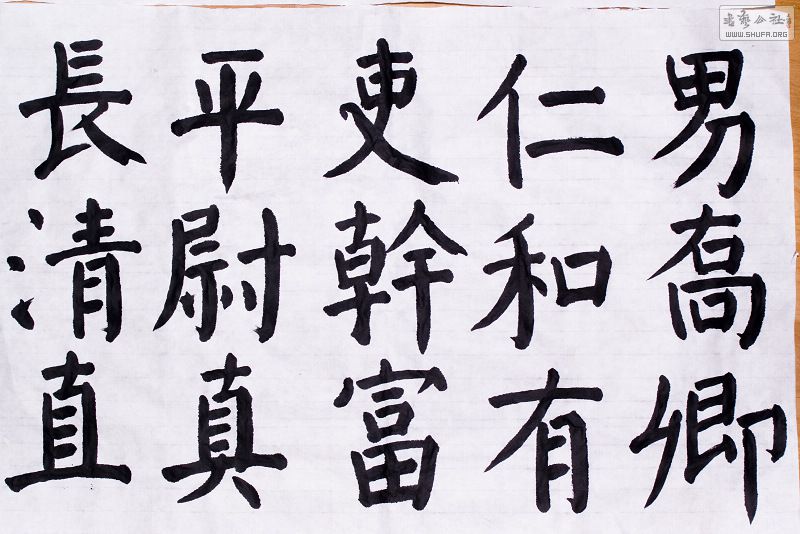 男喬卿
仁和有
吏幹富
平尉真
長清直
書藝公社
WWW.SHUFA.ORG